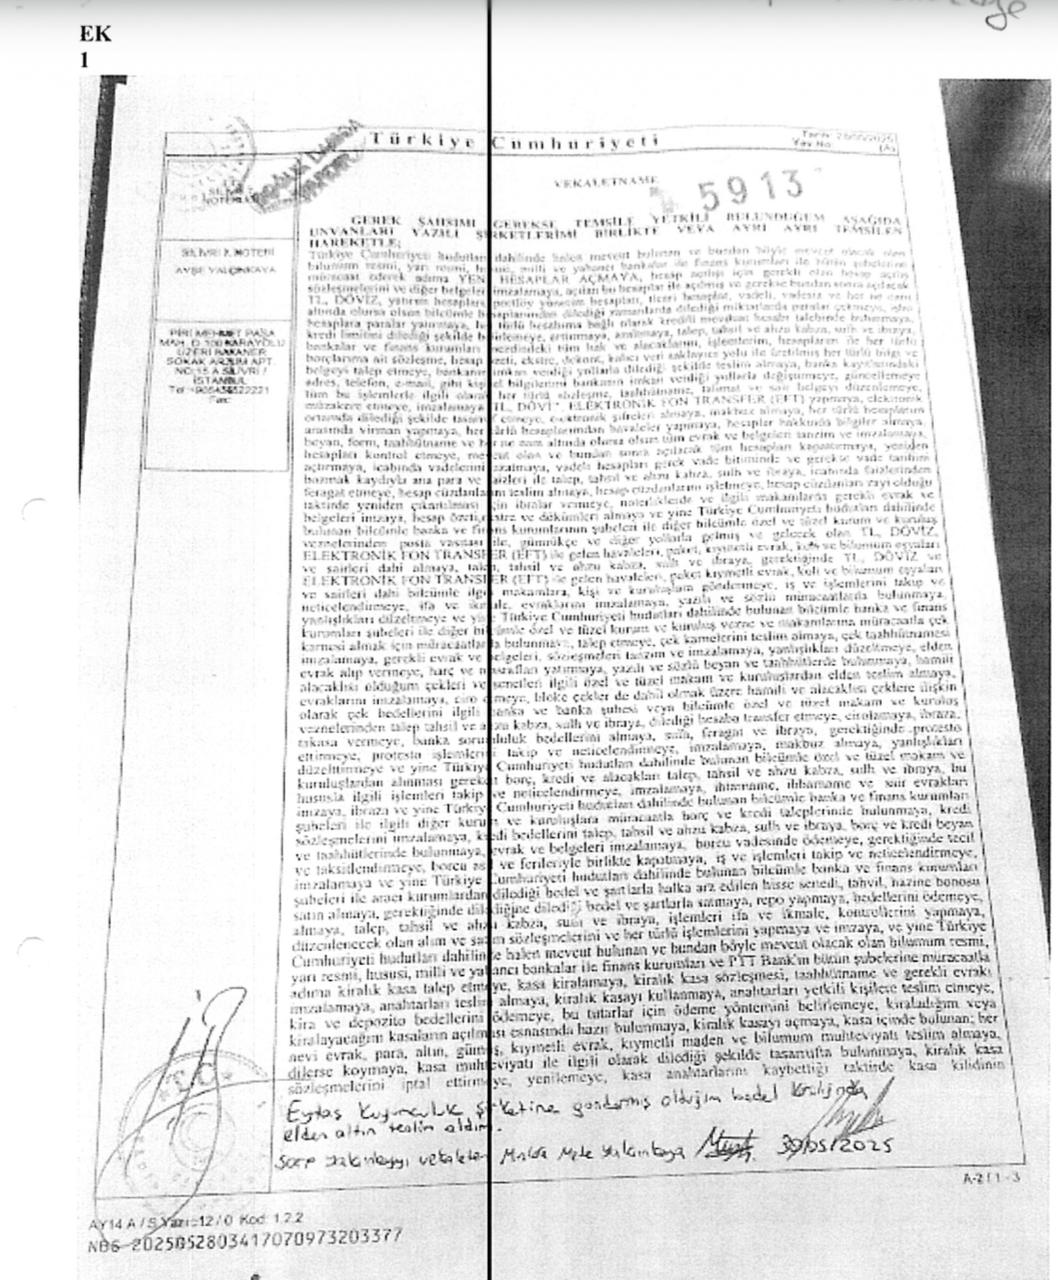 EK
1
Türkiye Cumhuriyeti
Tarih:
Yev.No:
(A)
VEKALETNAME
5913
NOTERLİĞİ
SİLİVRİ NOTERİ
AYŞE YALÇINKAYA
PİRİ MEHMET PAŞA
MAH. D.100 KARAYOLU
ÜZERİ
SOKAK ARZUM APT.
NO:15 A SİLİVRİ /
İSTANBUL
Fax:
GEREK ŞAHSIMI GEREKSE TEMSİLE YETKİLİ BULUNDUĞUM AŞAĞIDA
UNVANLARI YAZILI ŞİRKETLERİMİ BİRLİKTE VEYA AYRI AYRI TEMSİLEN
HAREKETLE;
Türkiye Cumhuriyeti hudutları dahilinde halen mevcut bulunan ve bundan böyle mevcut olacak olan
bilumum resmi, yarı resmi, milli ve yabancı bankalar ile finans kurumları
müracaat ederek adıma YENİ HESAPLAR AÇMAYA, hesap açılışı için gerekli olan hesap açılış
sözleşmelerini ve diğer belgeleri imzalamaya, açılan bu hesaplar ile açılmış ve gerekse bundan sonra açılacak
TL, DÖVİZ, yatırım hesapları, portföy yönetim hesapları, ticari hesaplar, vadeli, vadesiz ve her ne nam
altında olursa olsun bilcümle hesaplarımdan dilediği zamanlarda dilediği miktarlarda paralar çekmeye,
hesaplara paralar yatırmaya, her türlü hesabıma bağlı olarak kredili mevduat hesabı talebinde bulunmaya,
kredi limitini dilediği şekilde belirlemeye, artırmaya, azaltmaya, talep, tahsil ve ahzu kabza, sulh ve ibraya,
bankalar ve finans kurumları nezdindeki tüm hak ve alacaklarını, işlemlerim, hesaplarım ile her türlü
borçlarıma ait sözleşme, hesap özeti, ekstre, dekont, kalıcı veri saklayıcı yolu ile üretilmiş her türlü bilgi ve
belgeyi talep etmeye, bankanın imkan verdiği yollarla dilediği şekilde teslim almaya, banka kayıtlarındaki
adres, telefon, e.mail, gibi kişisel bilgilerimi bankanın imkan verdiği yollarla değiştirmeye, güncellemeye
tüm bu işlemlerle ilgili olarak her türlü sözleşme, taahhütname, talimat ve sair belgeyi düzenlemeye,
müzakere etmeye, imzalamaya TL, DÖVİZ, ELEKTRONİK FON TRANSFER (EFT) yapmaya, elektronik
ortamda dilediği şekilde tasarruf etmeye, elektronik şifreleri almaya, makbuz almaya, her türlü hesaplarım
arasında virman yapmaya, her türlü hesaplarımdan havaleler yapmaya, hesaplar hakkında bilgiler almaya,
beyan, form, taahhütname ve her ne nam altında olursa olsun tüm evrak ve belgeleri tanzim ve imzalamaya,
hesapları kontrol etmeye, mevcut olan ve bundan sonra açılacak tüm hesapları kapattırmaya, yeniden
açtırmaya, icabında vadelerini azaltmaya, vadeli hesapları gerek vade bitiminde ve gerekse vade tarihini
bozmak kaydıyla ana para ve faizleri ile talep, tahsil ve ahzu kabza, sulh ve ibraya, icabında faizlerinden
feragat etmeye, hesap cüzdanlarını teslim almaya, hesap cüzdanlarını işletmeye, hesap cüzdanları zayi olduğu
taktirde yeniden çıkarılması için ibralar vermeye, noterliklerde ve ilgili makamlarda gerekli evrak ve
belgeleri imzaya, hesap özeti, ekstre ve dökümleri almaya ve yine Türkiye Cumhuriyeti hudutları dahilinde
bulunan bilcümle banka ve finans kurumlarının şubeleri ile diğer bilcümle özel ve tüzel kurum ve kuruluş
veznelerinden posta vasıtası ile, gümrükçe ve diğer yollarla gelmiş ve gelecek olan TL, DÖVİZ,
ELEKTRONİK FON TRANSFER (EFT) ile gelen havaleleri, paket, kıymetli evrak, koli ve bilumum eşyaları
ve sairleri dahi almaya, talep, tahsil ve ahzu kabza, sulh ve ibraya, gerektiğinde TL, DÖVİZ ve
ELEKTRONİK FON TRANSFER (EFT) ile gelen havaleleri, paket kıymetli evrak, koli ve bilumum eşyaları
ve sairleri dahi bilcümle ilgili makamlara, kişi ve kuruluşlara göndermeye, iş ve işlemlerini takip ve
neticelendirmeye, ifa ve ikmale, evraklarını imzalamaya, yazılı ve sözlü müracaatlarda bulunmaya,
yanlışlıkları düzeltmeye ve yine Türkiye Cumhuriyeti hudutları dahilinde bulunan bilcümle banka ve finans
kurumları şubeleri ile diğer bilcümle özel ve tüzel kurum ve kuruluş vezne ve makamlarına müracaatla çek
karnesi almak için müracaatlarda bulunmaya, talep etmeye, çek karnelerini teslim almaya, çek taahhütnamesi
imzalamaya, gerekli evrak ve belgeleri, sözleşmeleri tanzim ve imzalamaya, yanlışlıkları düzeltmeye, elden
evrak alıp vermeye, harç ve masrafları yatırmaya, yazılı ve sözlü beyan ve taahhütlerde bulunmaya, hamili
alacaklısı olduğum çekleri ve senetleri ilgili özel ve tüzel makam ve kuruluşlardan elden teslim almaya,
evraklarını imzalamaya, ciro etmeye, bloke çekler de dahil olmak üzere hamili ve alacaklısı çeklere ilişkin
olarak çek bedellerini ilgili banka ve banka şubesi veya bilcümle özel ve tüzel makam ve kuruluş
veznelerinden talep tahsil ve ahzu kabza, sulh ve ibraya, dilediği hesaba transfer etmeye, cirolamaya, ibraza,
takasa vermeye, banka sorumluluk bedellerini almaya, sulh, feragat ve ibraya, gerektiğinde protesto
ettirmeye, protesto işlemlerini takip ve neticelendirmeye, imzalamaya, makbuz almaya, yanlışlıkları
düzelttirmeye ve yine Türkiye Cumhuriyeti hudutları dahilinde bulunan bilcümle özel ve tüzel makam ve
kuruluşlardan alınması gereken borç, kredi ve alacakları talep, tahsil ve ahzu kabza, sulh ve ibraya, bu
hususla ilgili işlemleri takip ve neticelendirmeye, imzalamaya, ihtarname, ihbarname ve sair evrakları
imzaya, ibraza ve yine Türkiye Cumhuriyeti hudutları dahilinde bulunan bilcümle banka ve finans kurumları
şubeleri ile ilgili diğer kurum ve kuruluşlara müracaatla borç ve kredi taleplerinde bulunmaya, kredi
sözleşmelerini imzalamaya, kredi bedellerini talep, tahsil ve ahzu kabza, sulh ve ibraya, borç ve kredi beyan
ve taahhütlerinde bulunmaya, evrak ve belgeleri imzalamaya, borcu vadesinde ödemeye, gerektiğinde tecil
ve taksitlendirmeye, borcu asıl ve ferileriyle birlikte kapatmaya, iş ve işlemleri takip ve neticelendirmeye,
imzalamaya ve yine Türkiye Cumhuriyeti hudutları dahilinde bulunan bilcümle banka ve finans kurumları
şubeleri ile aracı kurumlardan dilediği bedel ve şartlarla halka arz edilen hisse senedi, tahvil, hazine bonosu
satın almaya, gerektiğinde dilediğine dilediği bedel ve şartlarla satmaya, repo yapmaya, bedellerini ödemeye,
almaya, talep, tahsil ve ahzu kabza, sulh ve ibraya, işlemleri ifa ve ikmale, kontrollerini yapmaya,
düzenlenecek olan alım ve satım sözleşmelerini ve her türlü işlemlerini yapmaya ve imzaya, ve yine Türkiye
Cumhuriyeti hudutları dahilinde halen mevcut bulunan ve bundan böyle mevcut olacak olan bilumum resmi,
yarı resmi, hususi, milli ve yabancı bankalar ile finans kurumları ve PTT Bank'ın bütün şubelerine müracaatla
adıma kiralık kasa talep etmeye, kasa kiralamaya, kiralık kasa sözleşmesi, taahhütname ve gerekli evrakı
imzalamaya, anahtarları teslim almaya, kiralık kasayı kullanmaya, anahtarları yetkili kişilere teslim etmeye,
kira ve depozito bedellerini ödemeye, bu tutarlar için ödeme yöntemini belirlemeye, kiraladığım veya
kiralayacağım kasaların açılması esnasında hazır bulunmaya, kiralık kasayı açmaya, kasa içinde bulunan; her
nevi evrak, para, altın, gümüş, kıymetli evrak, kıymetli maden ve bilumum muhteviyatı teslim almaya,
dilerse koymaya, kasa muhteviyatı ile ilgili olarak dilediği şekilde tasarrufta bulunmaya, kiralık kasa
sözleşmelerini iptal ettirmeye, yenilemeye, kasa anahtarlarını kaybettiği taktirde kasa kilidinin
Eytaş Kuyumculuk şirketine göndermiş olduğum bedel karşılığında
elden altın teslim aldım.
vekaleten Mete Yalçınkaya 30/05/2025
A-2/1-3
AY14 A / S.Yazı:12 / 0 Kod: 1.2.2
NBS 20250528034170709732033​77